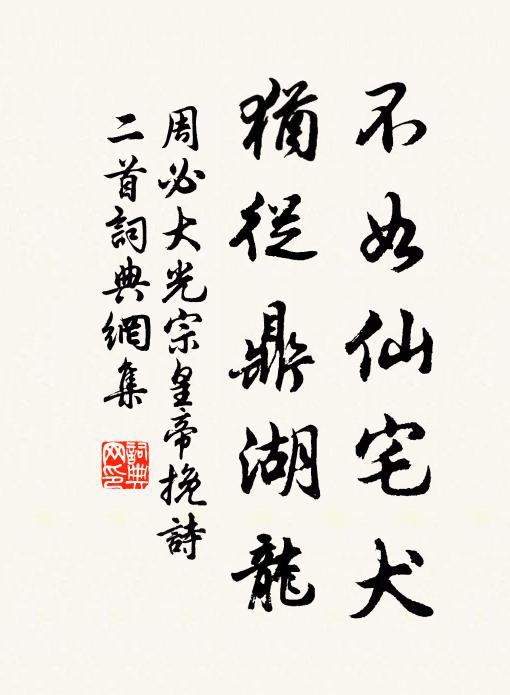 不如仙宅犬
猶從鼎湖龍
周必大光宗皇帝挽詩
二首詞典網集
詞典網印